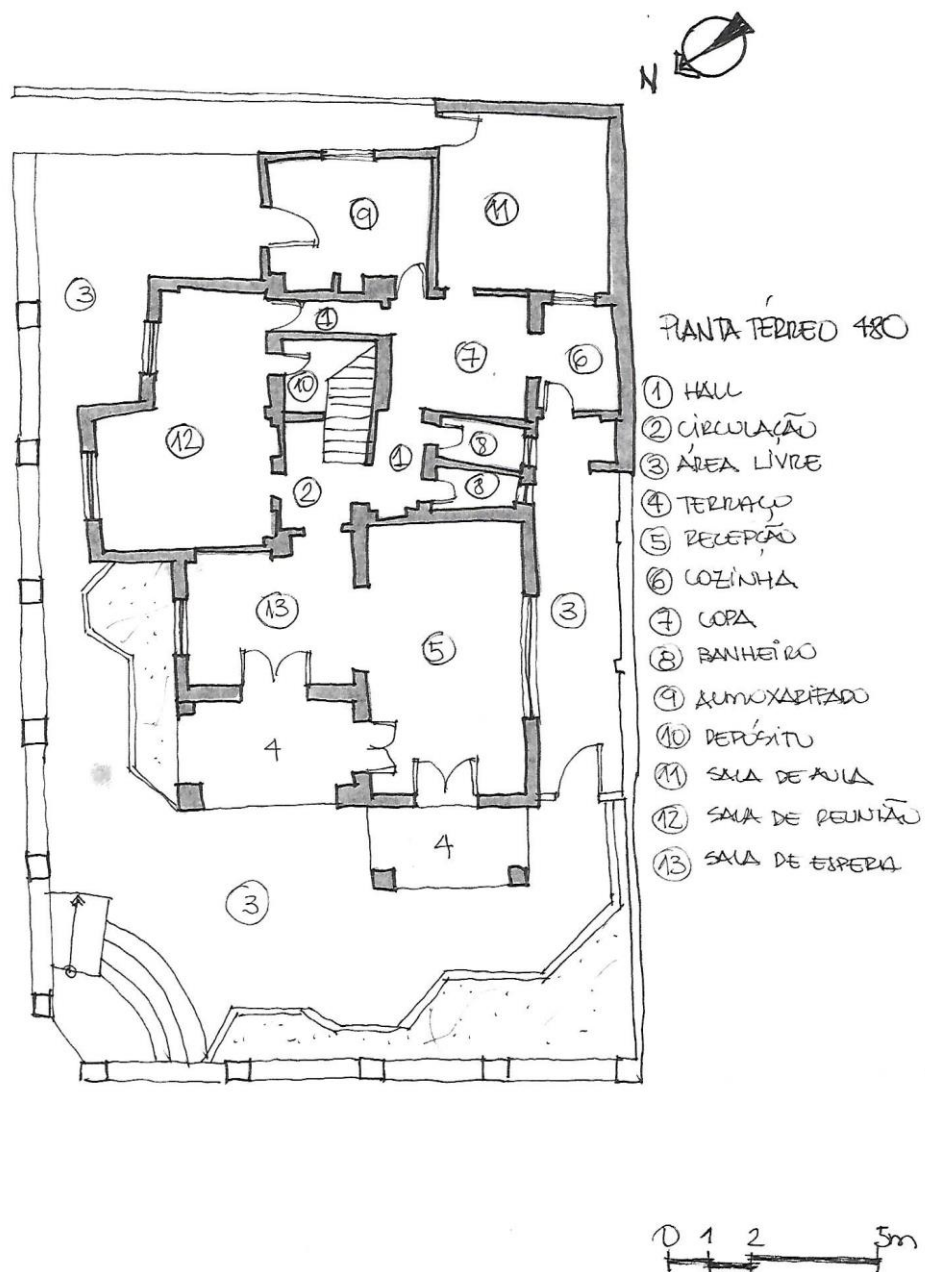 N
9
11
3
1
7
6
PLANTA TÉRREO 480
10
12
1
8
2
8
13
5
3
4
4
3
1 HALL
2 CIRCULAÇÃO
3 ÁREA LIVRE
4 TERRAÇO
5 RECEPÇÃO
6 COZINHA
7 COPA
8 BANHEIRO
9 ALMOXARIFADO
10 DEPÓSITO
11 SALA DE AULA
12 SALA DE REUNIÃO
13 SALA DE ESPERA
0 1 2 5m